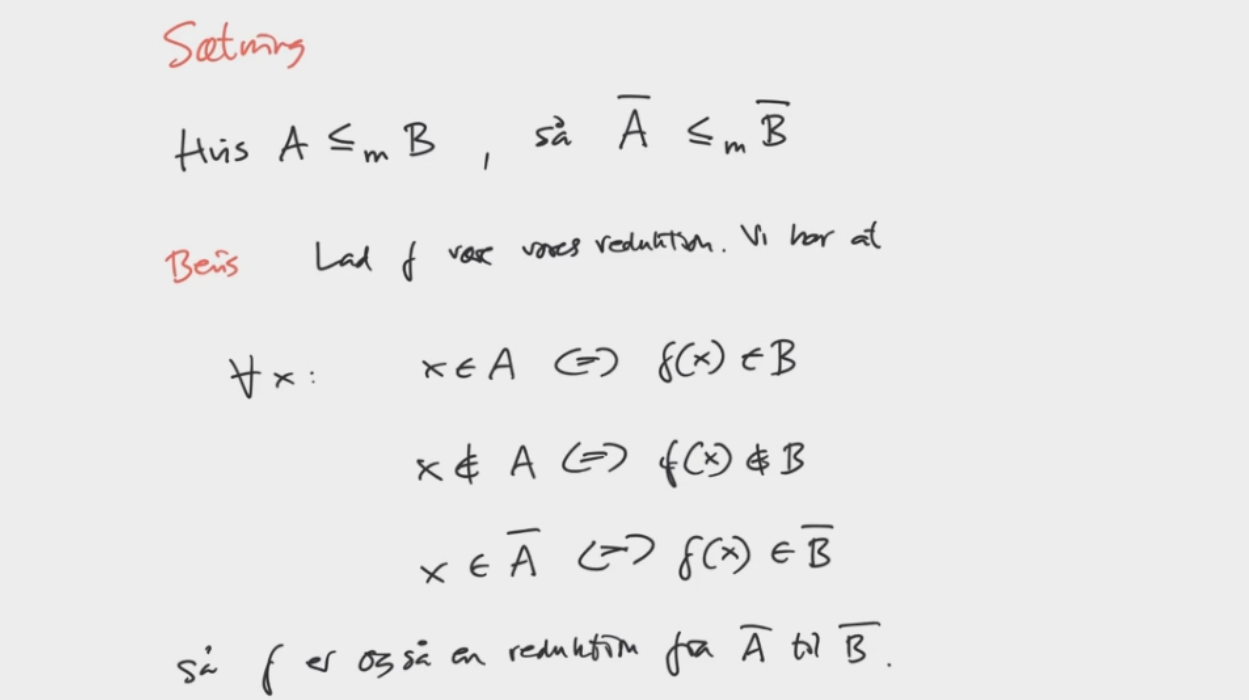 Sætning
Hvis A ≤ₘ B , så A̅ ≤ₘ B̅
Bevis Lad f være vores reduktion. Vi har at
∀x: x ∈ A ⇔ f(x) ∈ B
x ∉ A ⇔ f(x) ∉ B
x ∈ A̅ ⇔ f(x) ∈ B̅
så f er også en reduktion fra A̅ til B̅.